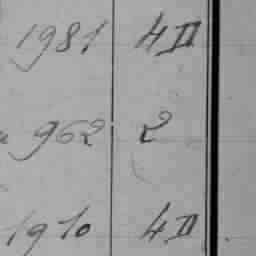 1981 4 II
962 2
1910 4 II